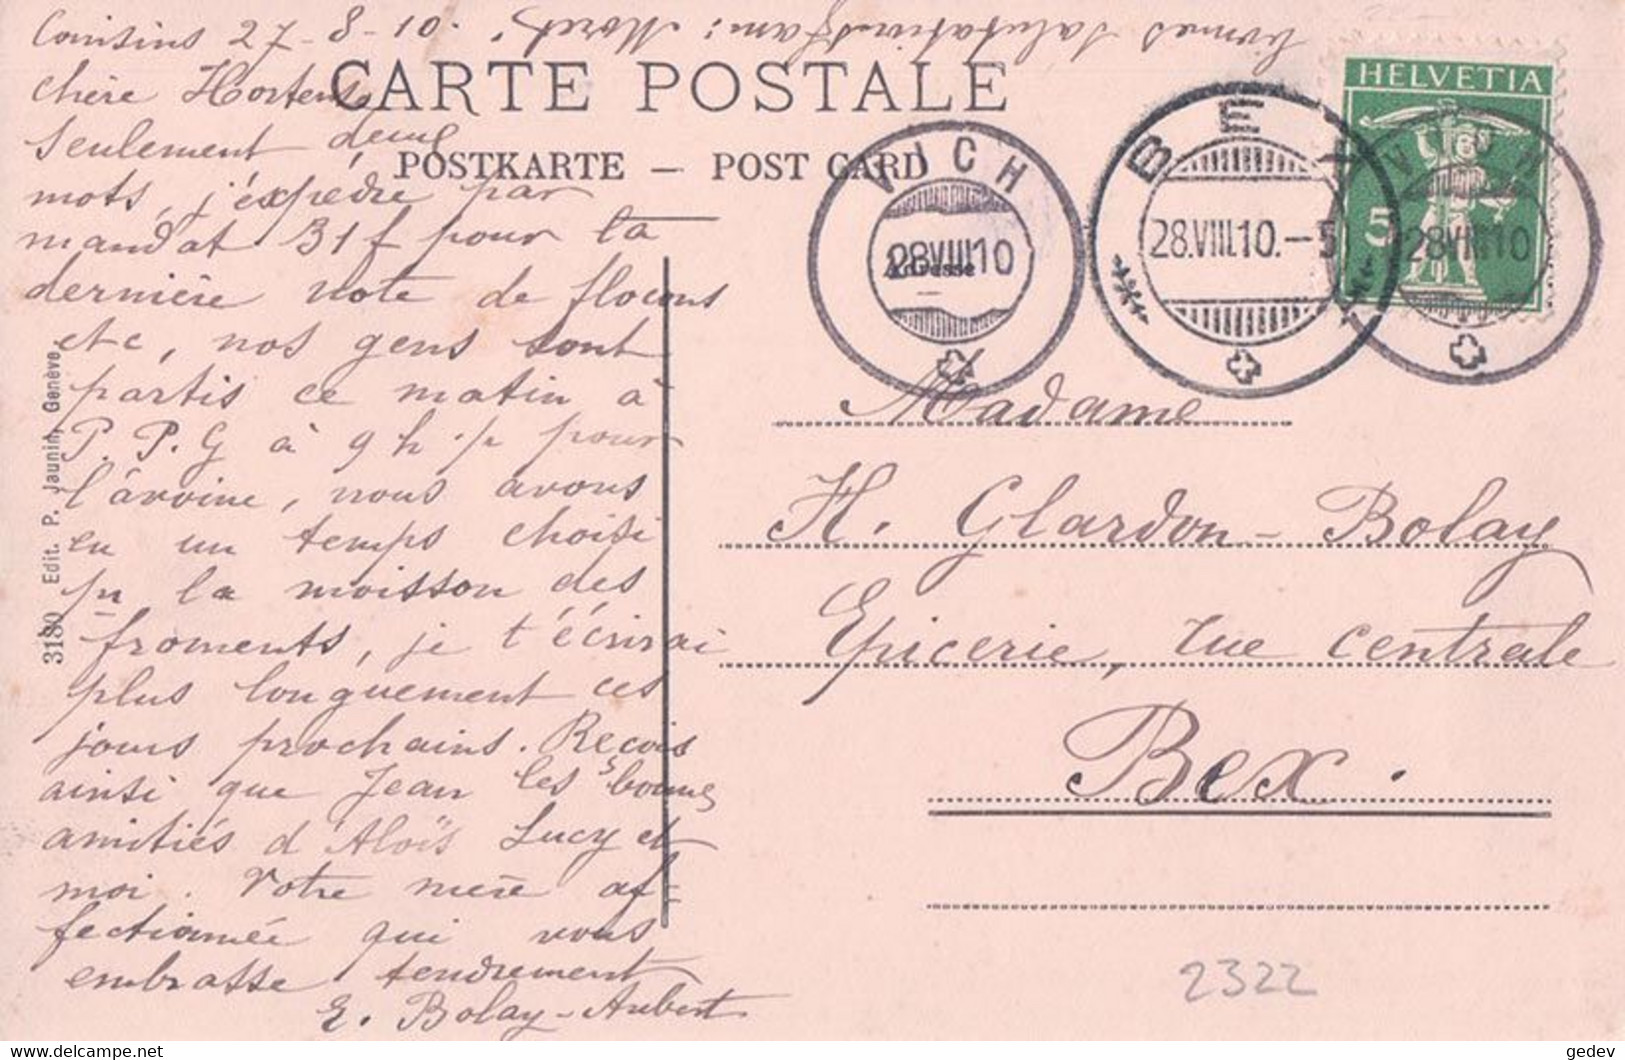 Coinsins 27-8-10.
chère Hortense
seulement deux
mots, j'éxpédie par
mandat 31 f pour la
dernière note de flocons
etc, nos gens sont
partis ce matin à
P. P. G à 9 h. pour
l'avoine, nous avons
eu un temps choisi
pr la moisson des
froments, je t'écrirai
plus longuement ces
jours prochains. Reçois
ainsi que Jean les bonnes
amitiés d'Aloïs Lucy et
moi. Votre mère af-
fectionnée qui vous
embrasse tendrement
E. Bolay-Aubert
bonnes salutations fam: Moret.
CARTE POSTALE
POSTKARTE — POST CARD
Adresse
VICH
28VIII10
BEX
28.VIII.10.-5
HELVETIA
5
VICH
28VIII10
Madame
H. Glardon-Bolay
Epicerie, rue centrale
Bex.
2322
3180 Edit. P. Jaunin, Genève.
delcampe.net
gedev